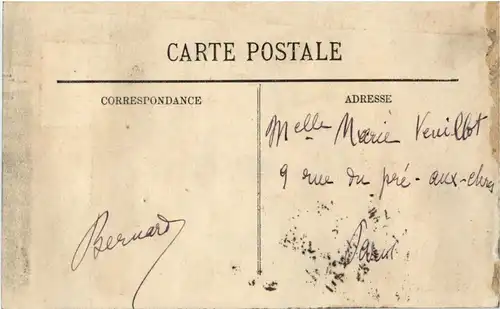 CARTE POSTALE
CORRESPONDANCE
ADRESSE
Melle Marie Veuillot
9 rue du pré-aux-clercs
Paris
Bernard